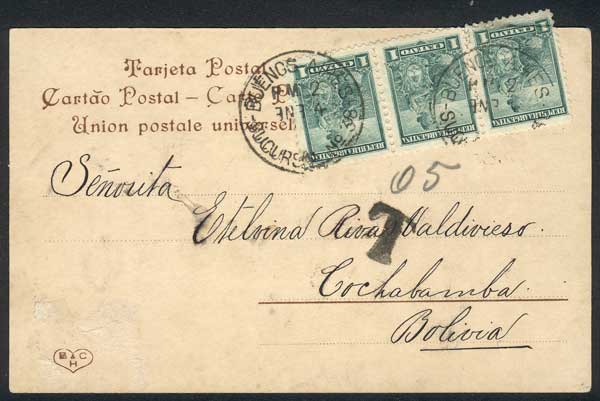 Tarjeta Postal
Cartão Postal – Ca
Union postale universel
1 CENTAVO 1
REPUBLICA ARGENTINA
1 CENTAVO 1
REPUBLICA ARGENTINA
1 CENTAVO 1
REPUBLICA ARGENTINA
BUENOS AIRES
SUCURS
05
T
Señorita
Etelvina Rivas Valdivieso
Cochabamba
Bolivia
B C
H